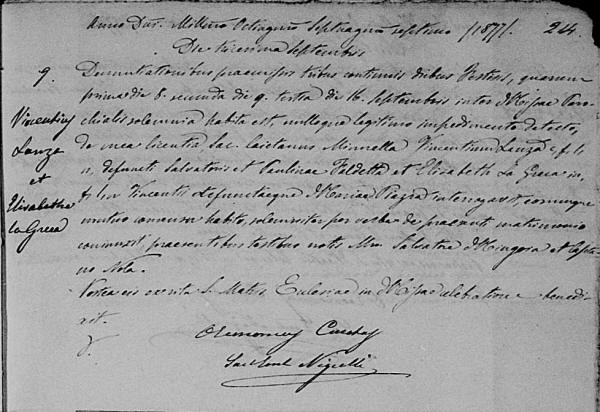 Anno Dni. Millmo Octingmo Septuagmo septimo /1877/. 24.
Die vicesima septembris
9. Denuntiationibus praemissis tribus continuis diebus festivis, quarum
prima die 8. secunda die 9. tertia die 16. septembris inter Missae Paro-
chialis solemnia habita est, nulloque legitimo impedimento detecto,
de mea licentia Sac. Caietanus Minnella Vincentium Lauza f. l.
n. defuncti Salvatoris et Paulinae Faldetta et Elisabeth La Greca in,
f. l. n. Vincenti defunctaeque Mariae Piazza interrogavit, eorumque
mutuo consensu habito, solemniter per verba de praesenti matrimonio
coniunxit praesentibus testibus notis Salvatore et
no Nola.
Postea eis ex ritu S. Matris Ecclesiae in Missae celebratione benedi-
xit.
Vincentius
Lauza
et
Elisabetha
la Greca